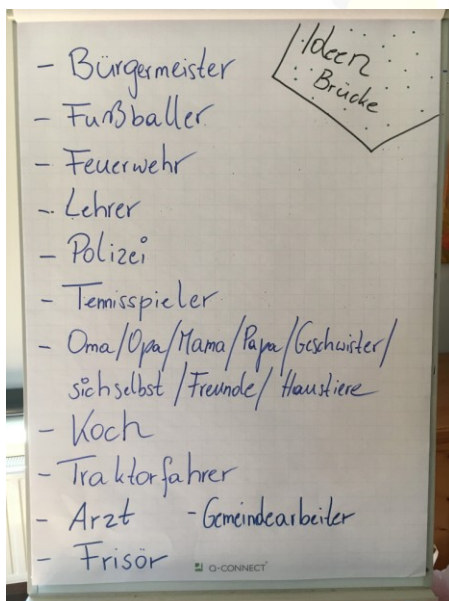 Ideen
Brücke
- Bürgermeister
- Fußballer
- Feuerwehr
- Lehrer
- Polizei
- Tennisspieler
- Oma/Opa/Mama/Papa/Geschwister/
sich selbst/Freunde/Haustiere
- Koch
- Traktorfahrer
- Arzt - Gemeindearbeiter
- Frisör
Q-CONNECT